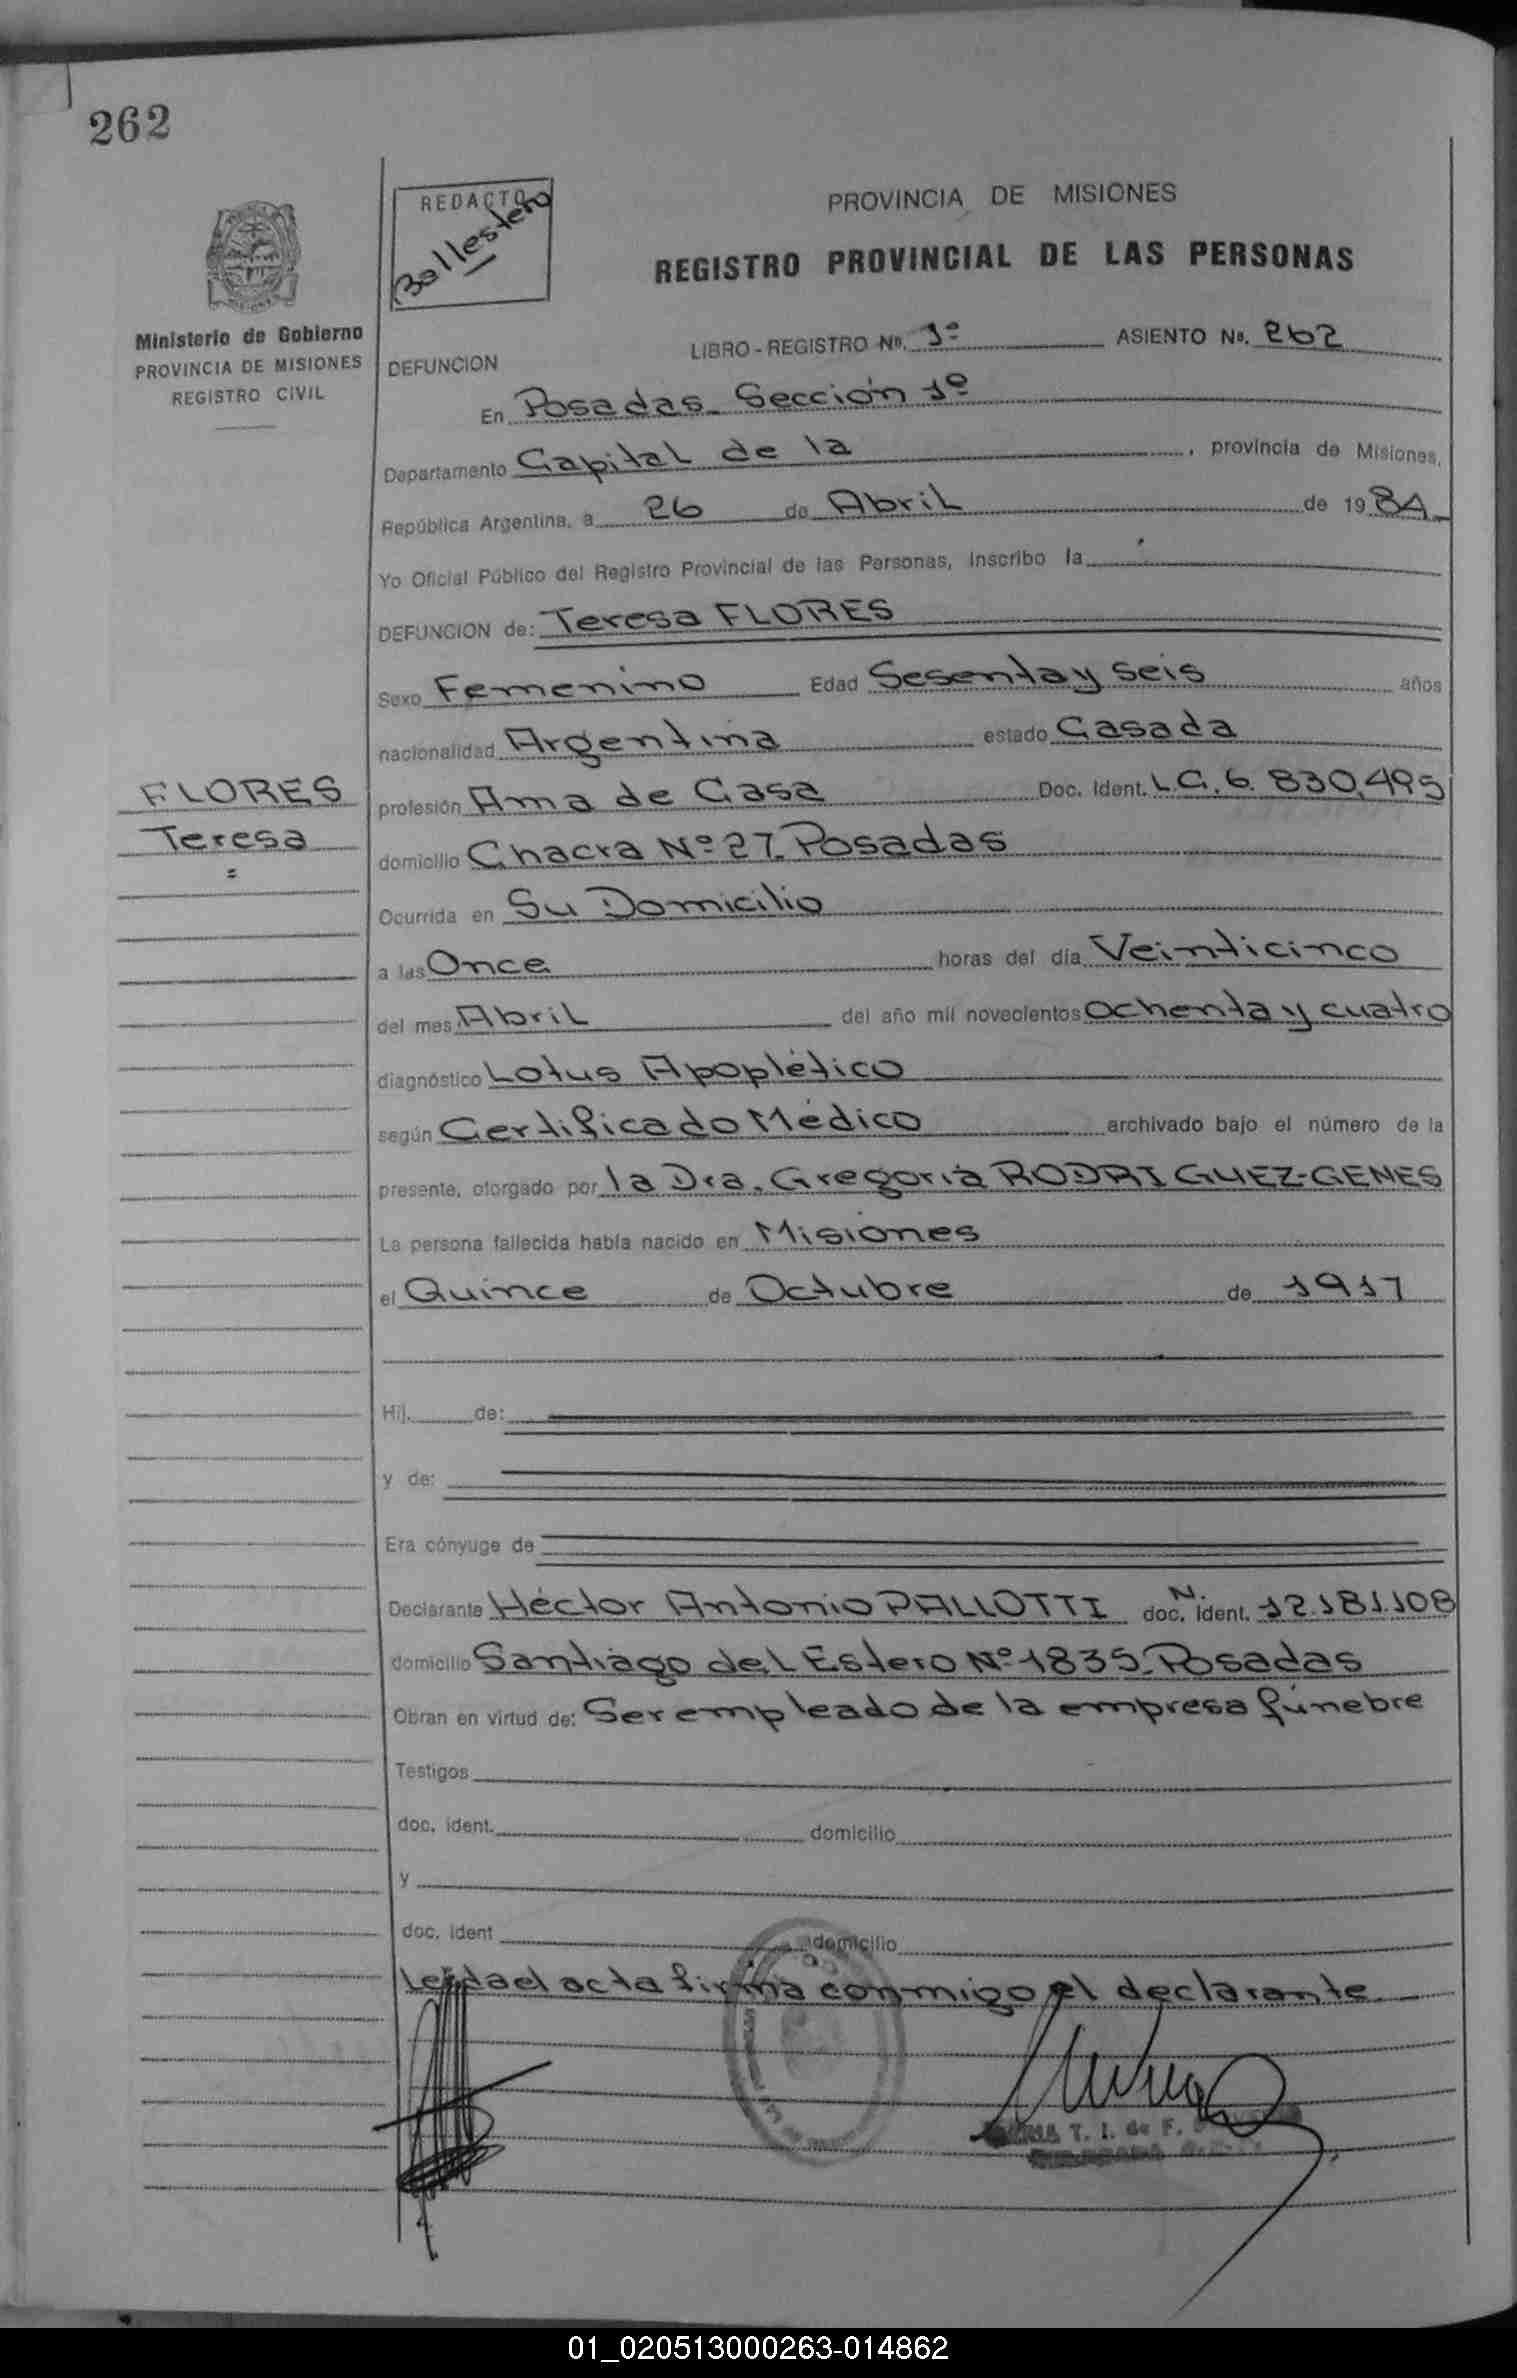 262
REDACTO
Ballestero
PROVINCIA DE MISIONES
REGISTRO PROVINCIAL DE LAS PERSONAS
Ministerio de Gobierno
PROVINCIA DE MISIONES
REGISTRO CIVIL
LIBRO - REGISTRO Nº. 1º ASIENTO Nº. 262
DEFUNCION
En Posadas Sección 1º
Departamento Capital de la , provincia de Misiones,
República Argentina, a 26 de Abril de 1984
Yo Oficial Público del Registro Provincial de las Personas, inscribo la
DEFUNCION de: Teresa FLORES
Sexo Femenino Edad Sesenta y seis años
nacionalidad Argentina estado Casada
FLORES
Teresa
profesión Ama de Casa Doc. Ident. L.C. 6.830.495
domicilio Chacra Nº 27. Posadas
Ocurrida en Su Domicilio
a las Once horas del día Veinticinco
del mes Abril del año mil novecientos ochenta y cuatro
diagnóstico Lotus Apoplético
según Certificado Médico archivado bajo el número de la
presente, otorgado por la Dra. Gregoria RODRIGUEZ-GENES
La persona fallecida había nacido en Misiones
el Quince de Octubre de 1917
Hij. de:
y de:
Era cónyuge de
Declarante Héctor Antonio PALLOTTI doc. N. ident. 12.181.108
domicilio Santiago del Estero Nº 1835. Posadas
Obran en virtud de: Ser empleado de la empresa fúnebre
Testigos
doc. ident. domicilio
y
doc. ident domicilio
Leída el acta firma conmigo el declarante
T. I. de F.
01_020513000263-014862